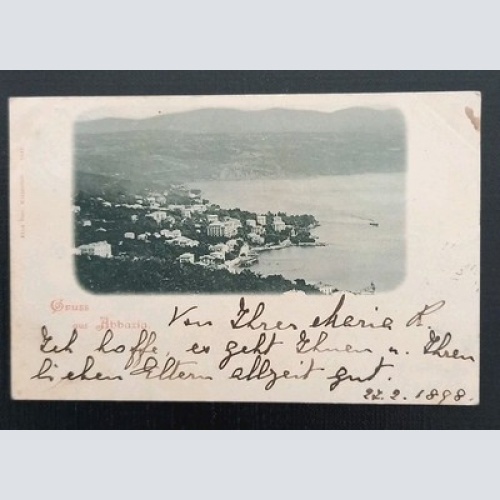 Gruss
aus Abbazia.
Von Ihrer Maria R.
Ich hoffe, es geht Ihnen u. Ihren
lieben Eltern allzeit gut.
22.2.1898.